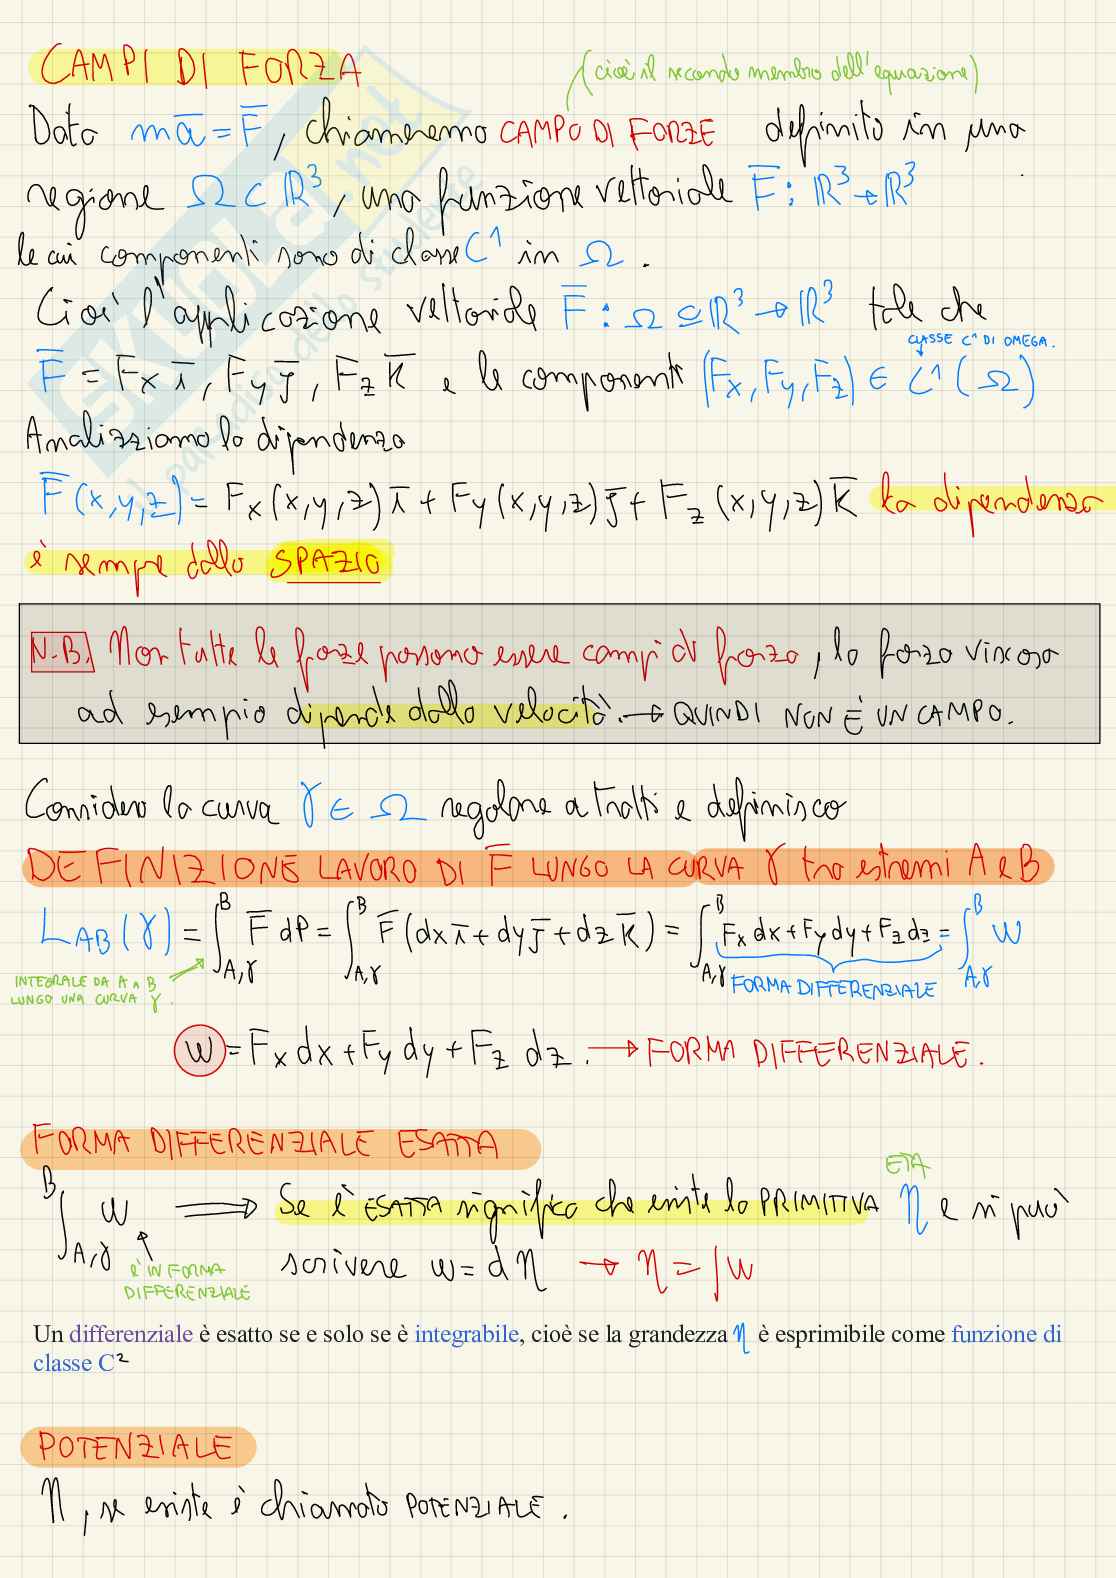 CAMPI DI FORZA
(cioè il secondo membro dell'equazione)
Dato ma̅ = F̅, chiameremo CAMPO DI FORZE definito in una
regione Ω ⊂ ℝ³, una funzione vettoriale F̅ : ℝ³ → ℝ³
le cui componenti sono di classe C¹ in Ω.
Cioè l'applicazione vettoriale F̅ : Ω ⊆ ℝ³ → ℝ³ tale che
CLASSE C¹ DI OMEGA.
F̅ = Fx i̅, Fy j̅, Fz k̅ e le componenti (Fx, Fy, Fz) ∈ C¹(Ω)
Analizziamo la dipendenza
F̅(x,y,z) = Fx(x,y,z) i̅ + Fy(x,y,z) j̅ + Fz(x,y,z) k̅ la dipendenza
è sempre dallo SPAZIO
N.B. Non tutte le forze possono essere campi di forza, la forza viscosa
ad esempio dipende dalla velocità. → QUINDI NON È UN CAMPO.
Considero la curva γ ∈ Ω regolare a tratti e definisco
DEFINIZIONE LAVORO DI F̅ LUNGO LA CURVA γ tra estremi A e B
L_AB(γ) = ∫_{A,γ}^{B} F̅ dP = ∫_{A,γ}^{B} F̅(dx i̅ + dy j̅ + dz k̅) = ∫_{A,γ}^{B} Fx dx + Fy dy + Fz dz = ∫_{A,γ}^{B} w
INTEGRALE DA A a B
LUNGO UNA CURVA γ.
FORMA DIFFERENZIALE
w = Fx dx + Fy dy + Fz dz. → FORMA DIFFERENZIALE.
FORMA DIFFERENZIALE ESATTA
ETA
∫_{A,γ}^{B} w ⟹ Se è ESATTA significa che esiste la PRIMITIVA η e si può
scrivere w = dη → η = ∫w
è IN FORMA
DIFFERENZIALE
Un differenziale è esatto se e solo se è integrabile, cioè se la grandezza η è esprimibile come funzione di
classe C²
POTENZIALE
η, se esiste è chiamato POTENZIALE.
SKUOLA.net